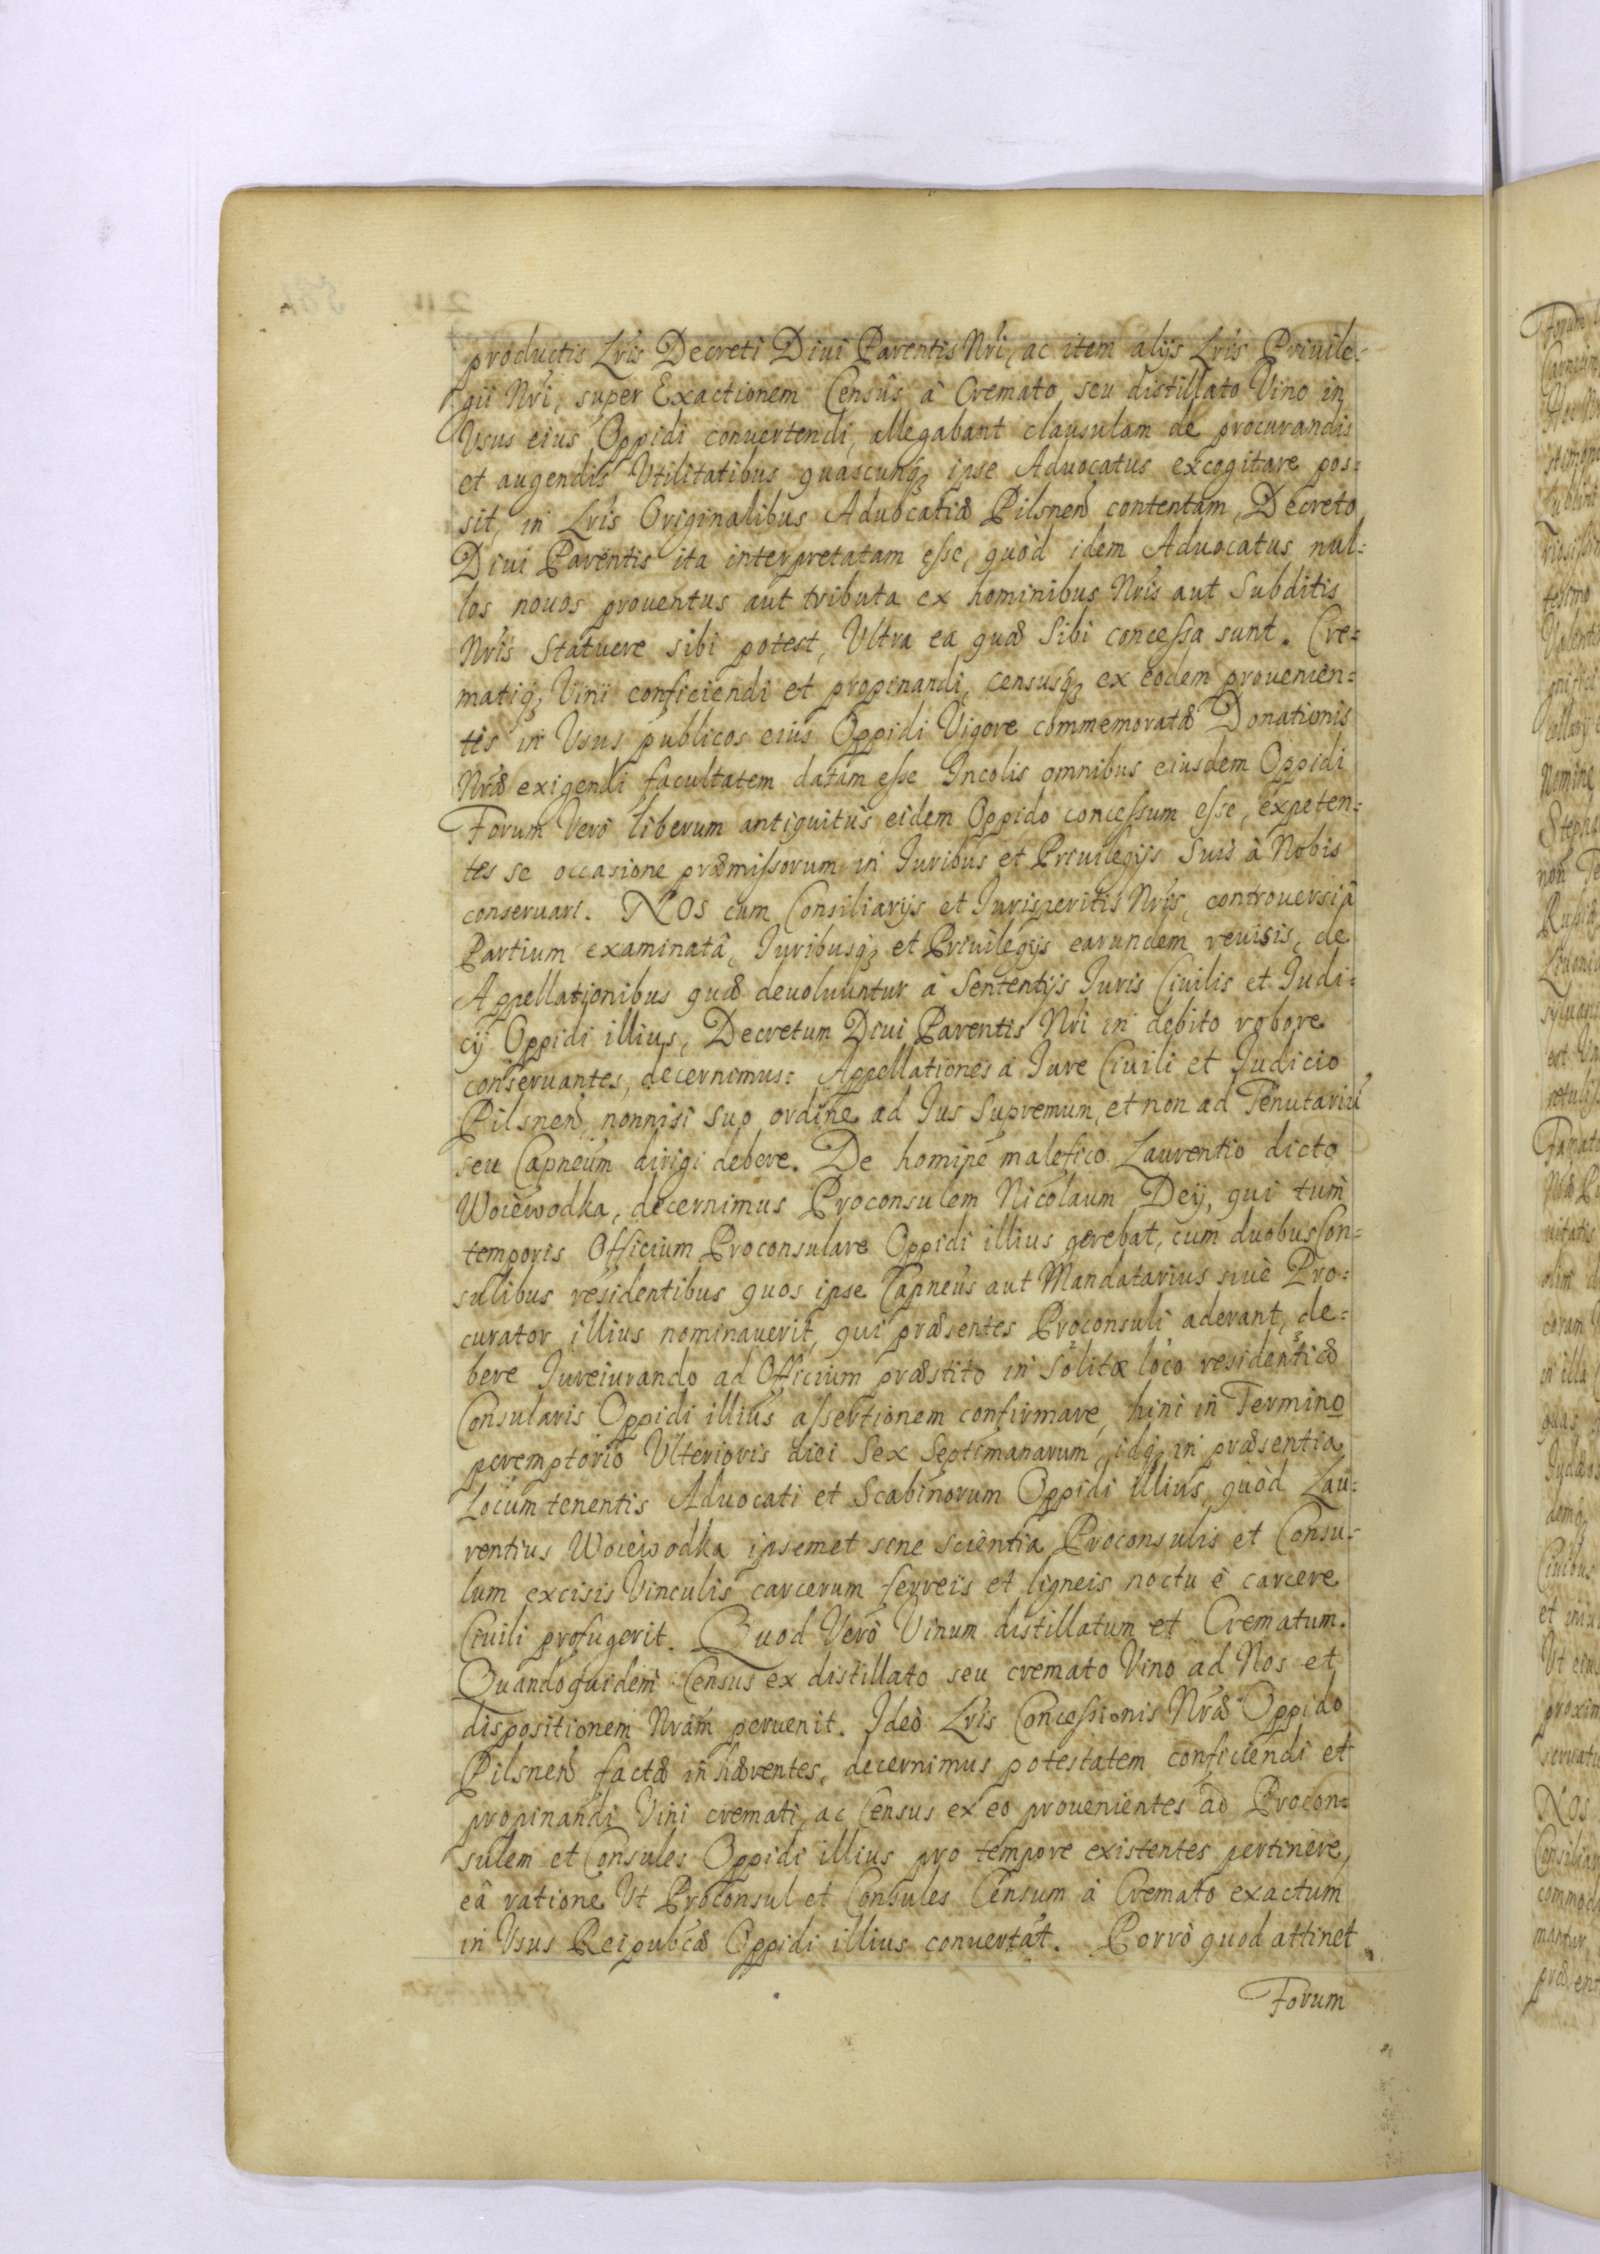 productis Lris Decreti Diui Parentis Nri, ac item alijs Lris Priuile-
gii Nri, super Exactionem Censûs à Cremato seu distillato Vino in
Vsus eius Oppidi conuertendi, allegabant clausulam de procurandis
et augendis Vtilitatibus quascunq; ipse Aduocatus excogitare pos-
sit, in Lris Originalibus Aduocatiæ Pilsnen contentam, Decreto
Diui Parentis ita interpretatam esse, quòd idem Aduocatus nul-
los nouos prouentus aut tributa ex hominibus Nris aut Subditis
Nris Statuere sibi potest, Vltra ea quæ Sibi concessa sunt. Cre-
matiq; Vini conficiendi et propinandi, censusq; ex eodem prouenien-
tis in Vsus publicos eius Oppidi Vigore commemoratæ Donationis
Nræ exigendi facultatem datam esse Incolis omnibus eiusdem Oppidi
Forum Verò liberum antiquitùs eidem Oppido concessum esse, expeten-
tes se occasione præmissorum in Iuribus et Priuilegijs Suis à Nobis
conseruari. NOS cum Consiliarijs et Iurisperitis Nris, controuersiâ
Partium examinatâ, Iuribusq; et Priuilegijs earundem reuisis, de
Appellationibus quæ deuoluuntur à Sententijs Iuris Ciuilis et Iudi-
cij Oppidi illius, Decretum Diui Parentis Nri in debito robore
conseruantes, decernimus: Appellationes à Iure Ciuili et Iudicio
Pilsnen, nonnisi suo ordine ad Ius Supremum, et non ad Tenutariũ
seu Capneum dirigi debere. De homine malefico Laurentio dicto
Woiewodka, decernimus Proconsulem Nicolaum Deij, qui tum
temporis Officium Proconsulare Oppidi illius gerebat, cum duobus Con-
sulibus residentibus quos ipse Capneus aut Mandatarius siuè Pro-
curator illius nominauerit, qui præsentes Proconsuli aderant, de-
bere Iureiurando ad Officium præstito in Solitæ loco residentiæ
Consularis Oppidi illius assertionem confirmare, hinc in Termino
peremptorio Vlterioris diei Sex Septimanarum, idq; in præsentia
Locumtenentis Aduocati et Scabinorum Oppidi illius, quòd Lau-
rentius Woiewodka ipsemet sine scientia Proconsulis et Consu-
lum excisis Vinculis carcerum ferreis et ligneis noctu è carcere
Ciuili profugerit. Quod Verò Vinum distillatum et Crematum.
Quandoquidem Census ex distillato seu cremato Vino ad Nos et
dispositionem Nram peruenit. Ideò Lris Concessionis Nræ Oppido
Pilsnen factæ inhærentes, decernimus potestatem conficiendi et
propinandi Vini cremati, ac Census ex eo prouenientes ad Procon-
sulem et Consules Oppidi illius pro tempore existentes pertinere,
eâ ratione Vt Proconsul et Consules Censum à Cremato exactum
in Vsus Reipubcæ Oppidi illius conuertat. Porrò quod attinet
Forum